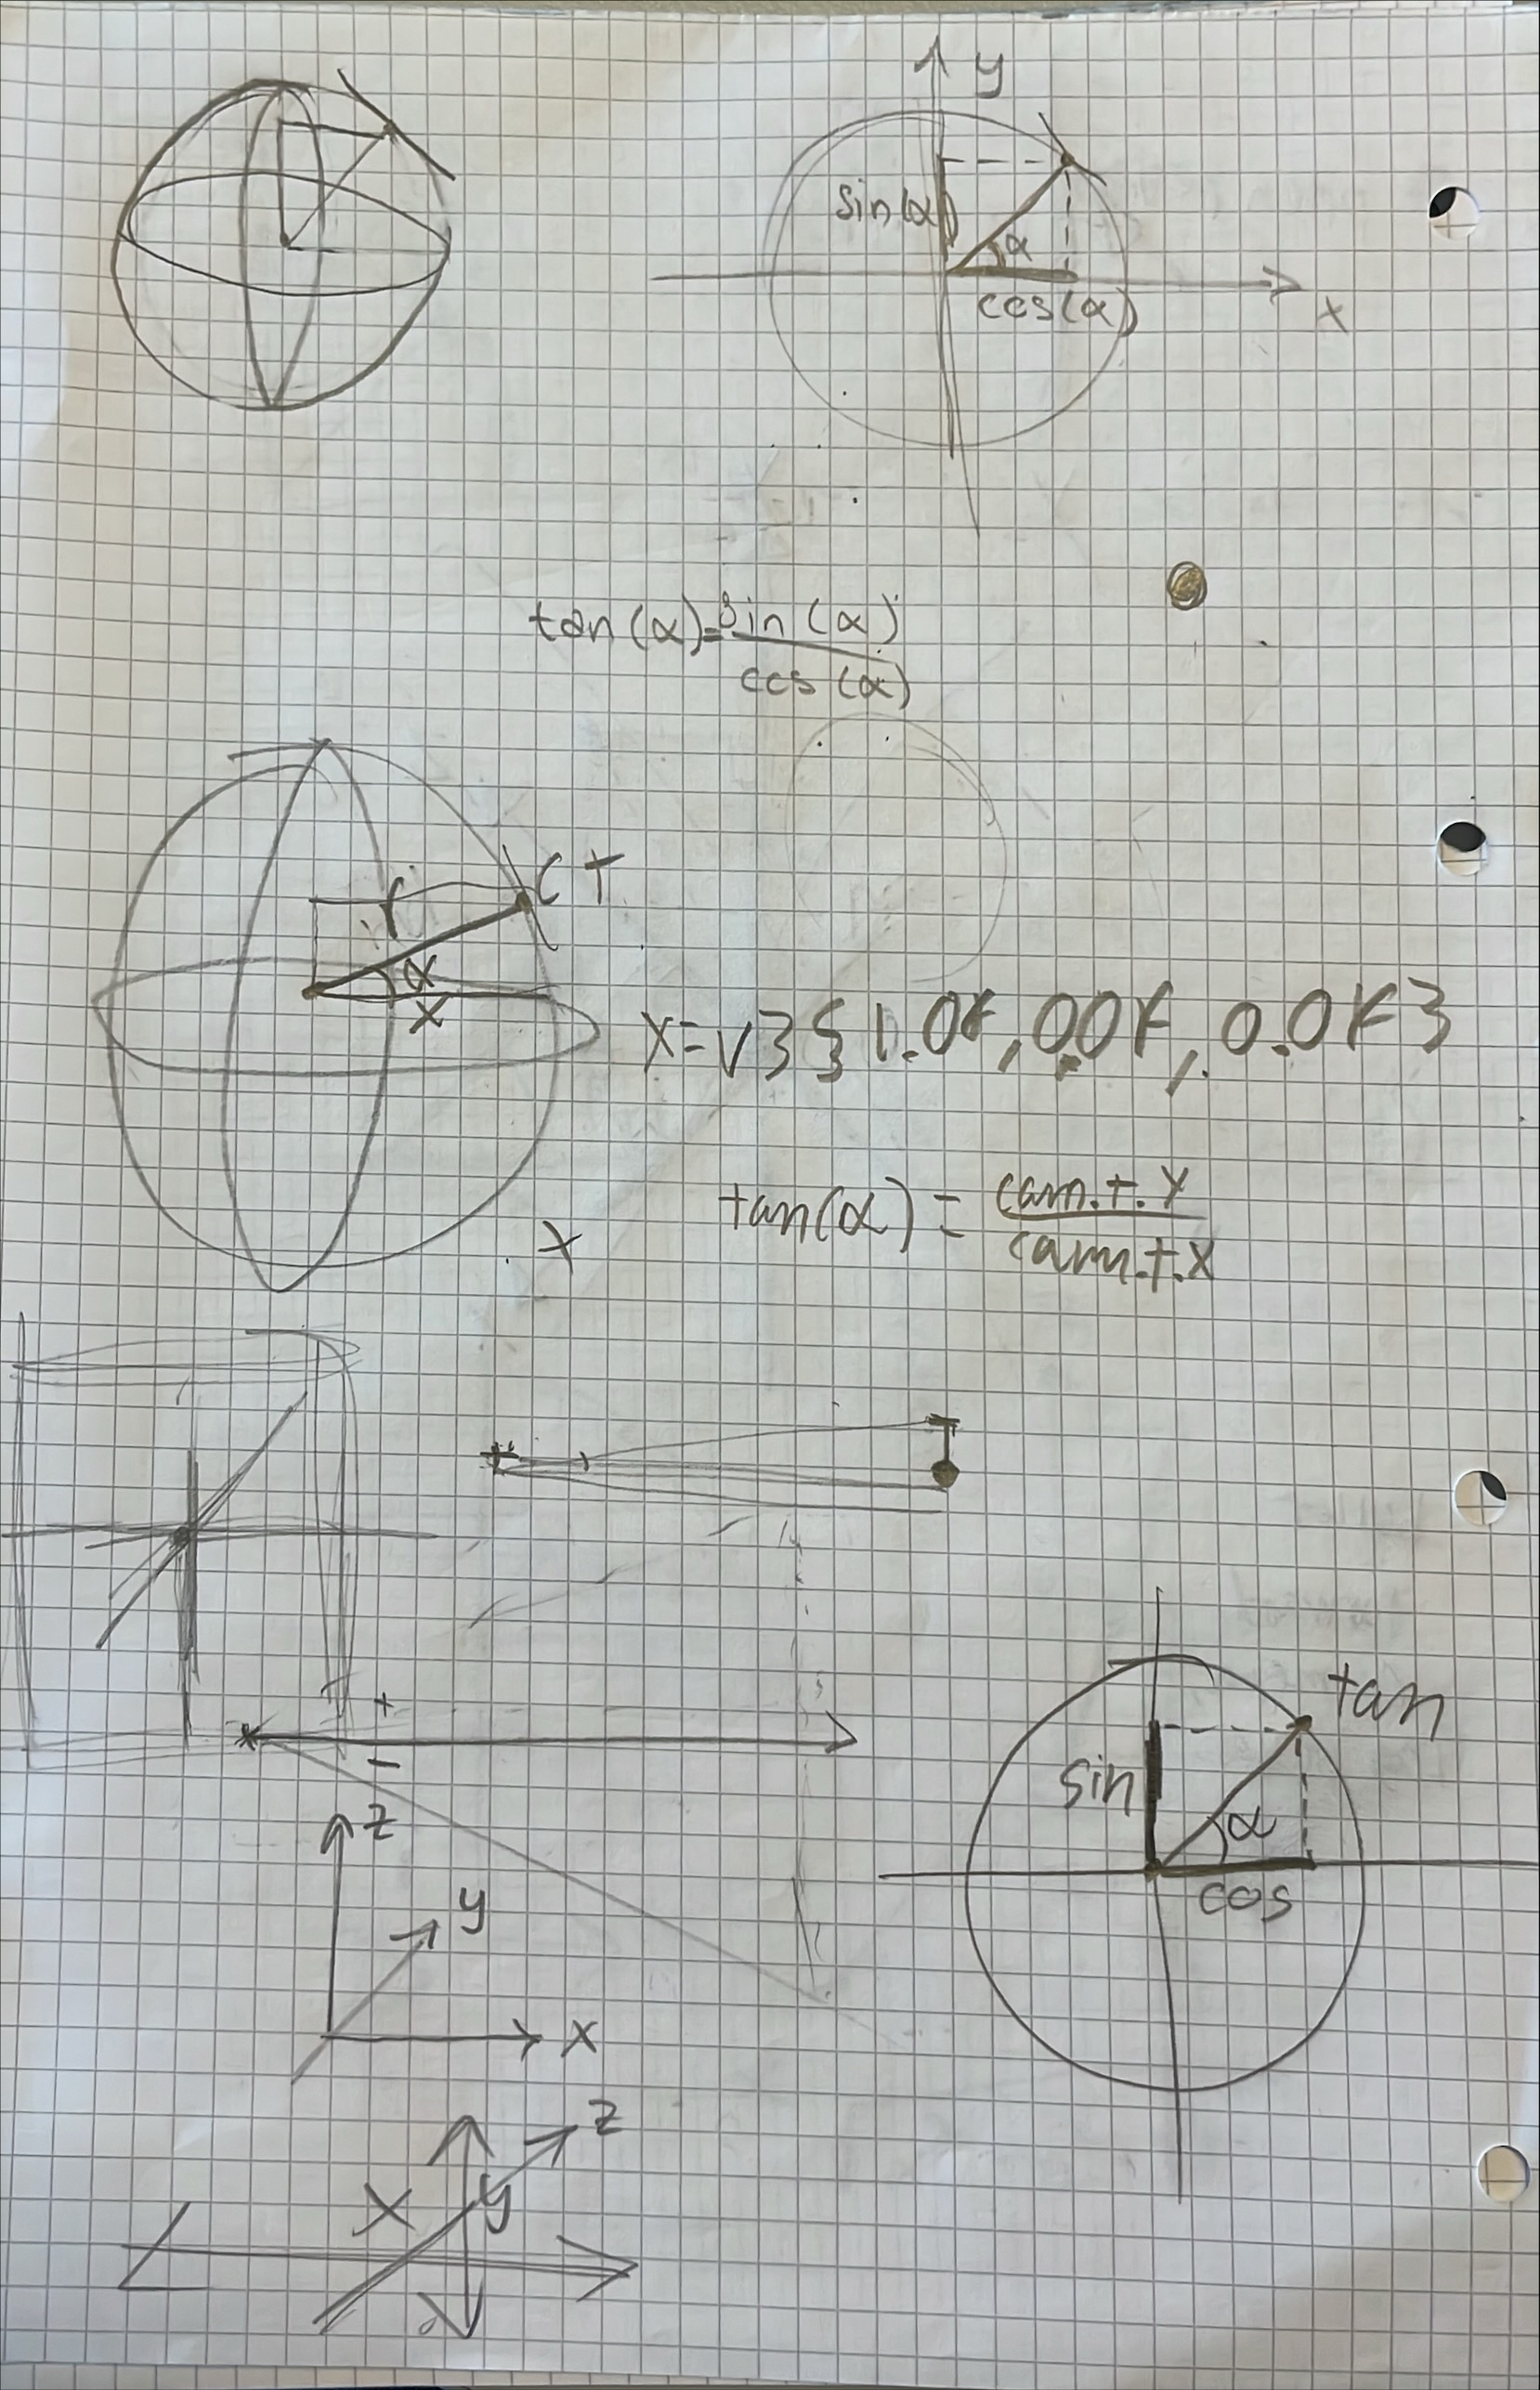 y
sin(α)
α
cos(α)
x
tan(α)=sin(α)
cos(α)
r
CT
α
x
x=v3{1.0f,0.0f,0.0f}
tan(α) = cam.t.y
cam.t.x
x
+
-
tan
sin
α
cos
z
y
x
z
x
y